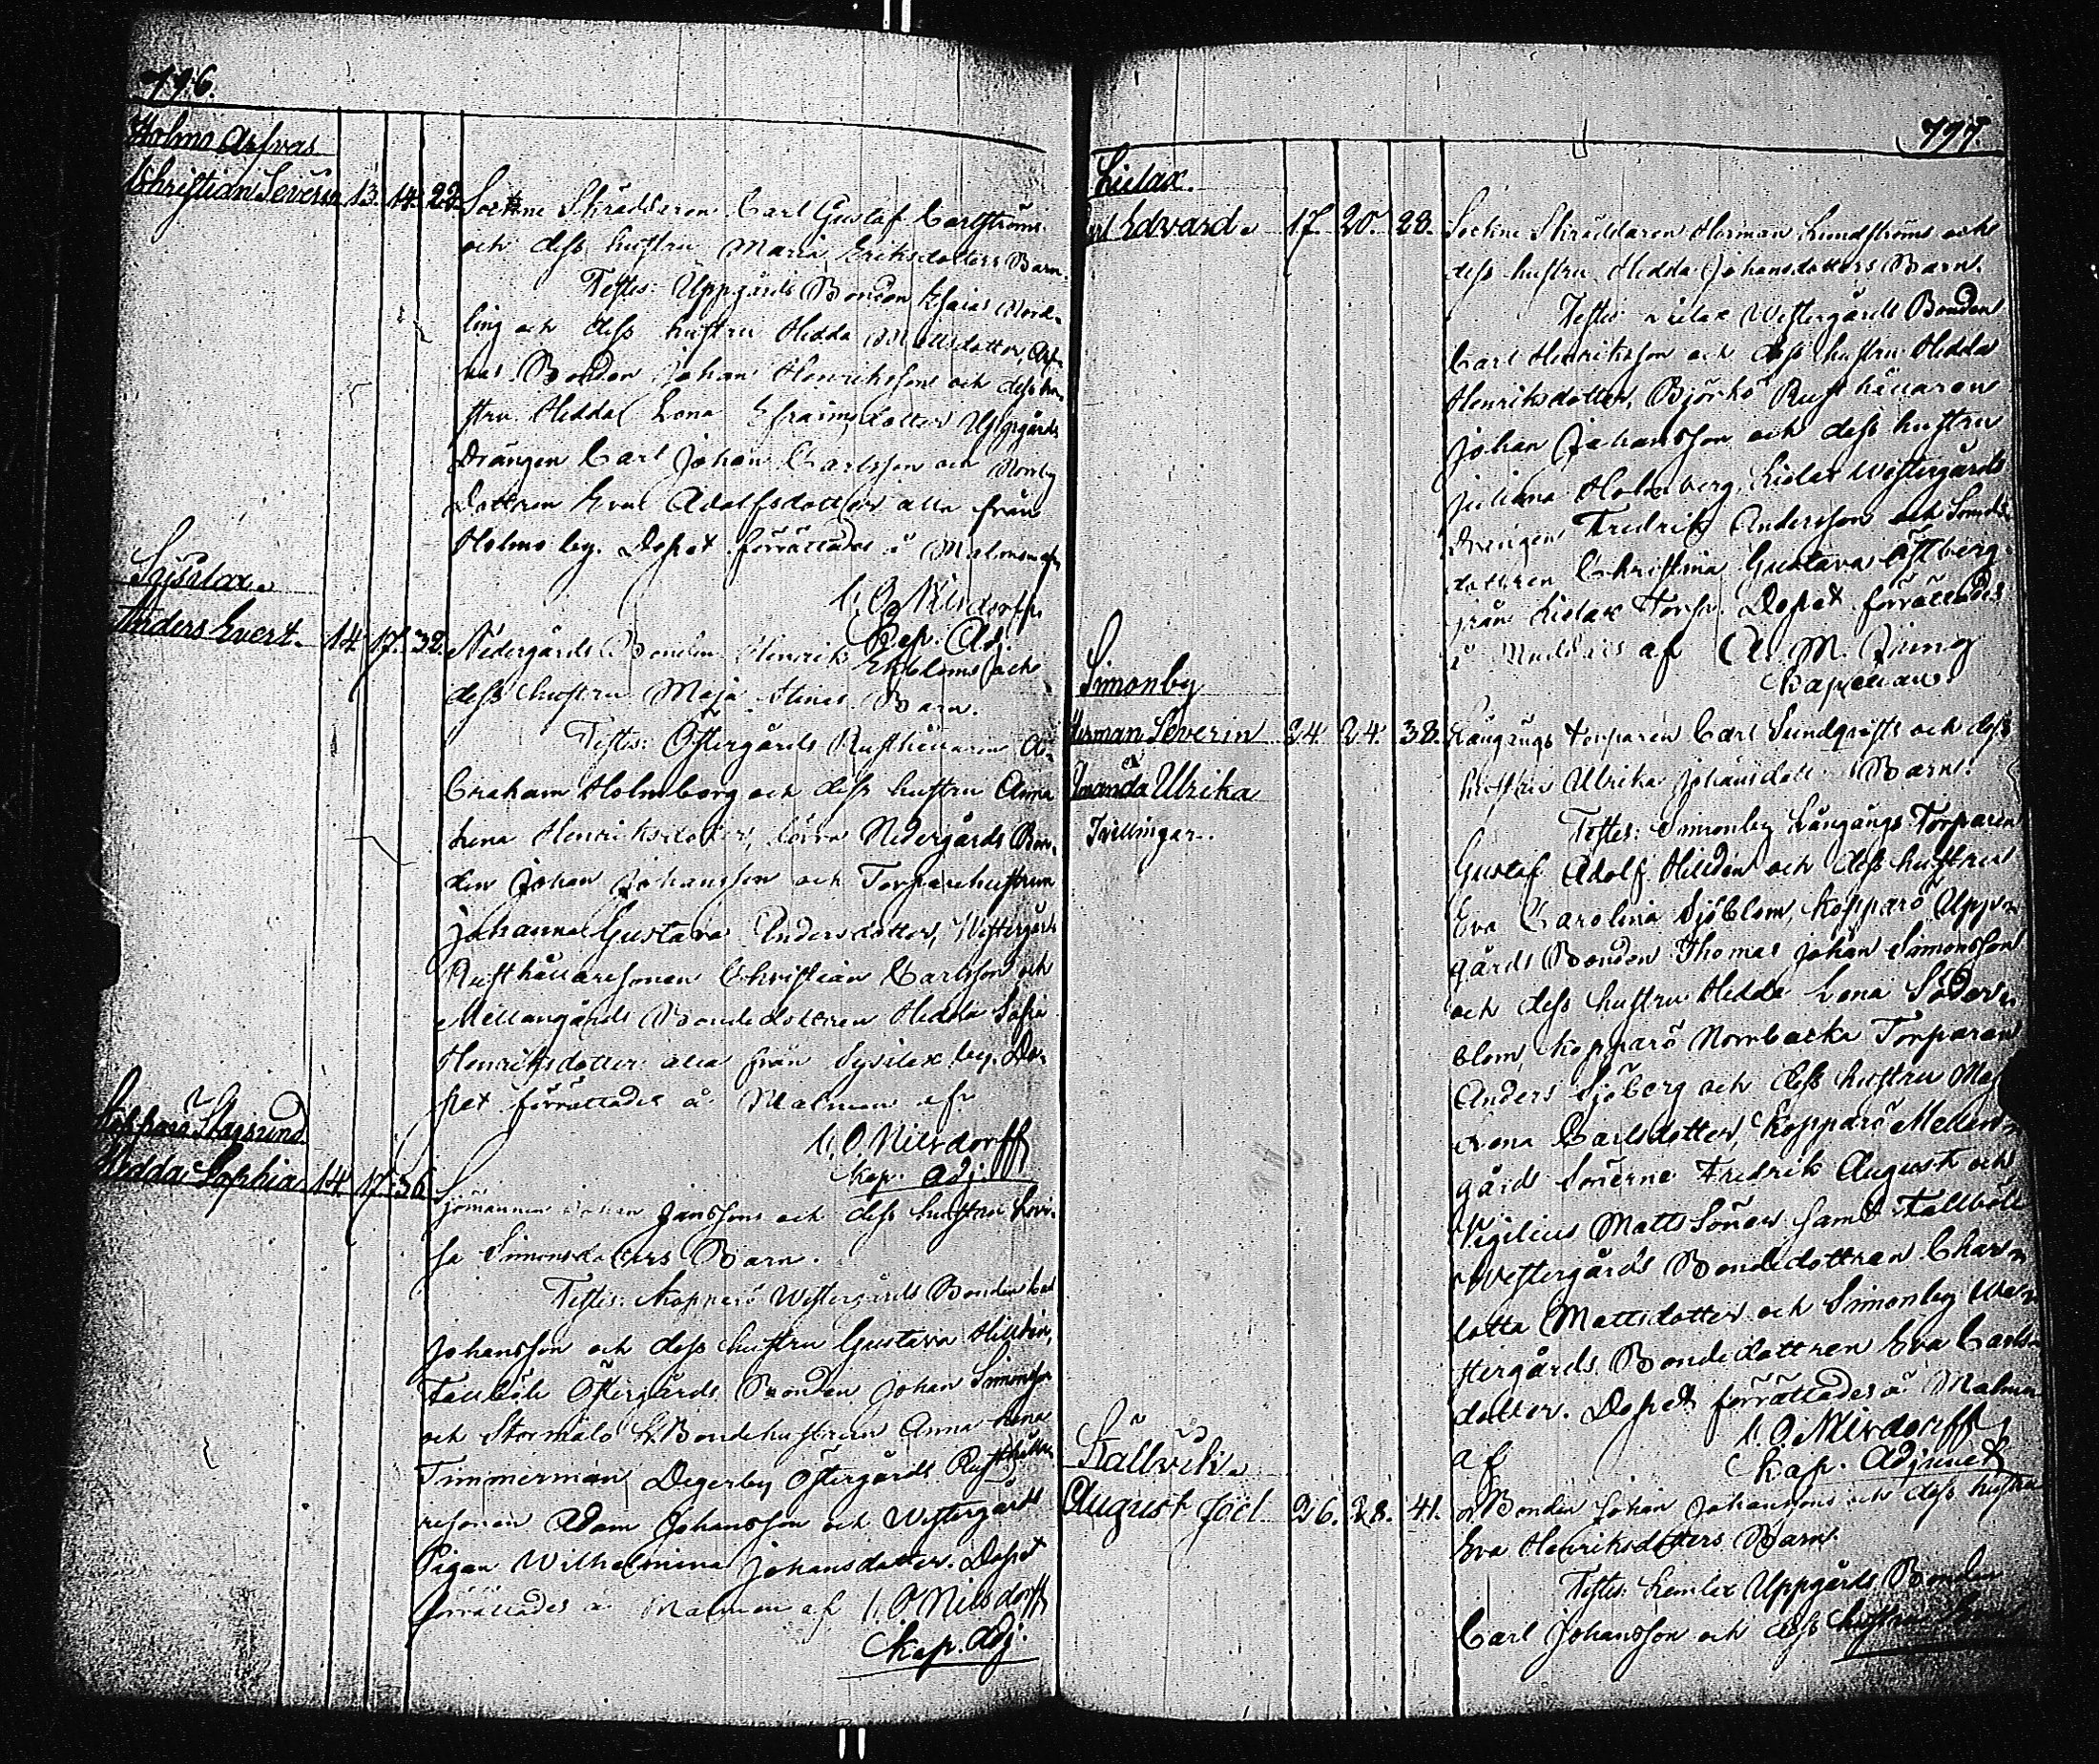 776.
Holmo Arfvas
Christian Severin 13. 14. 22. Sockne Skräddaren Carl Gustaf Carlströms
och dess hustru Maria Eriksdotters Barn.
Testes: Uppgårds Bonden Esaias Nord-
ling och dess hustru Hedda Mattsdotter, Arf-
vas Bonden Johan Henriksson och dess hu-
stru Hedda Lena Efraimsdotter Uppgårds
Drängen Carl Johan Carlsson och
dottren Eva Adolfsdotter alla från
Holmo by. Dopet förrättades å Malmen af
C. O. Nilsdorff
Kap. Adj.
Sysilax.
Anders Evert. 14. 17. 32. Nedergårds Bonden Henrik Ekbloms och
dess hustru Maja Stinas Barn.
Testes: Östergårds Rusthållaren A-
braham Holmberg och dess hustru Anna
Lena Henriksdotter, Nedergårds Bon-
den Johan Johansson och Torparehustrun
Johanna Gustava Andersdotter, Westergårds
Rusthållaresonen Christian Carlsson och
Mellangårds Bondedottren Hedda Sofia
Henriksdotter alla från Sysilax by. Do-
pet förrättades å Malmen af
C. O. Nilsdorff
Kap. Adj.
Kopparö Stagsund
Hedda Sophia 14. 17. 36. Sjömannen Johan Janssons och dess hustru Lovi-
sa Simonsdotters Barn.
Testes: Kopparö Westergårds Bonden Carl
Johansson och dess hustru Gustava Hilldén,
Tallböle Östergårds Bonden Johan Simonsson
och Stormälö Bondehustrun Anna Lena
Timmerman, Degerby Östergårds Rusthålla-
resonen Adam Johansson och Westergårds
Pigan Wilhelmina Johansdotter. Dopet
förrättades å Malmen af C. O. Nilsdorff
Kap. Adj.
777.
Lielax.
Carl Edvard. 17. 20. 28. Sockne Skräddaren Herman Lundströms och
dess hustru Hedda Johansdotters Barn.
Testes: Lielax Westergårds Bonden
Carl Henriksson och dess hustru Hedda
Henriksdotter, Björkö Rusthållaren
Johan Johansson och dess hustru
Juliana Holmberg, Lielax Westergårds
Drängen Fredrik Andersson och
dottren Christina Gustava Östberg
från Lielax Torp. Dopet förrättades
å af A. M. Jung
Kapellan.
Simonby
Herman Severin 24. 24. 38. Långängs Torparen Carl Lundqvists och dess
hustru Ulrika Johansdott. Barn.
&
Amanda Ulrika
Tvillingar.
Testes: Simonby Långängs Torparen
Gustaf Adolf Hilldén och dess hustru
Eva Carolina Sjöblom, Kopparö Upp-
gårds Bonden Thomas Johan Simonsson
och dess hustru Hedda Lena Söder-
blom, Kopparö Norrbacka Torparen
Anders Sjöberg och dess hustru Maja
Lena Carlsdotter, Kopparö Mellan-
gårds Sönerne Fredrik August och
Vigilius Matts Söner samt Tallböle
Westergårds Bondedottren Char-
lotta Mattsdotter och Simonby We-
stergårds Bondedottren Eva Carls-
dotter. Dopet förrättades å Malmen
af C. O. Nilsdorff
Kap. Adjunct
Källvik.
August Joel. 26. 28. 41. Bonden Johan Johanssons och dess hustru
Eva Henriksdotters Barn.
Testes: Lemlax Uppgårds Bonden
Carl Johansson och dess hustru Eva